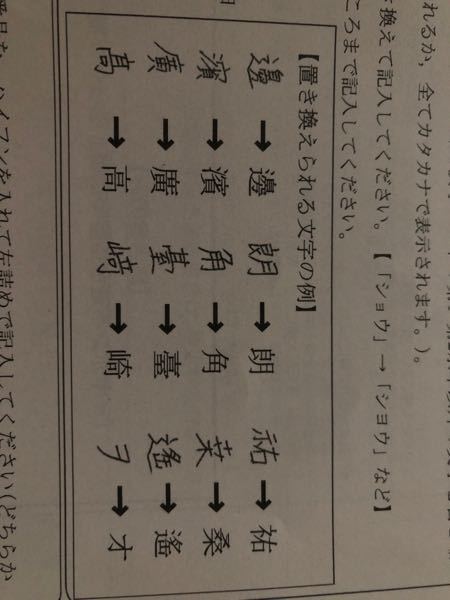 れるか，全てカタカナで表示されます。)。
き換えて記入してください。【「ショウ」→「シヨウ」など】
ころまで記入してください。
【置き換えられる文字の例】
邉 → 邊 朗 → 朗 祐 → 祐
濵 → 濱 角 → 角 桒 → 桑
廣 → 廣 䑓 → 臺 遙 → 遙
髙 → 高 﨑 → 崎 ヲ → オ
ハイフンを入れて左詰めで記入してください(どちらか